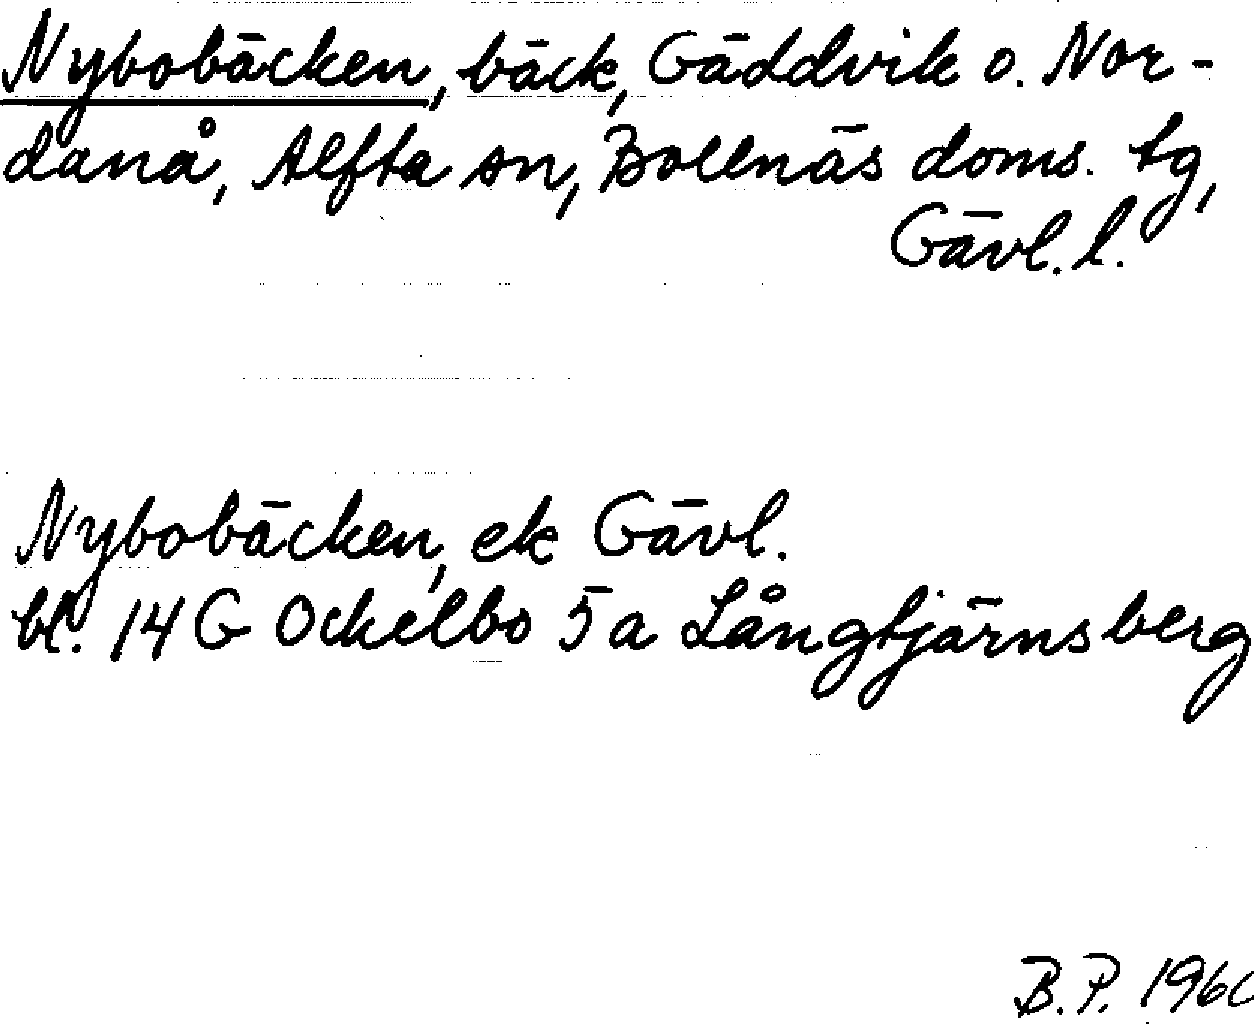 Nybobäcken, bäck, Gäddvik o. Nor-
danå, Alfta sn, Bollnäs doms. tg,
Gävl. l.
Nybobäcken, ek Gävl.
bl. 14 G Ockelbo 5 a Långtjärnsberg
B. P. 1960